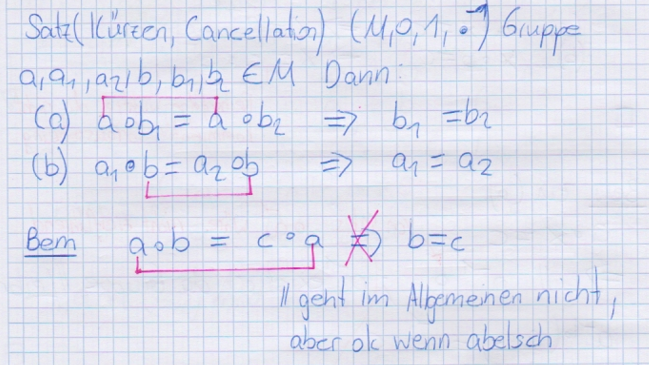 Satz (Kürzen, Cancellation) (M, ∘, 1, •⁻¹) Gruppe
a, a₁, a₂, b, b₁, b₂ ∈ M Dann:
(a) a ∘ b₁ = a ∘ b₂ ⇒ b₁ = b₂
(b) a₁ ∘ b = a₂ ∘ b ⇒ a₁ = a₂
Bem a ∘ b = c ∘ a ⇏ b = c
// geht im Allgemeinen nicht,
aber ok wenn abelsch